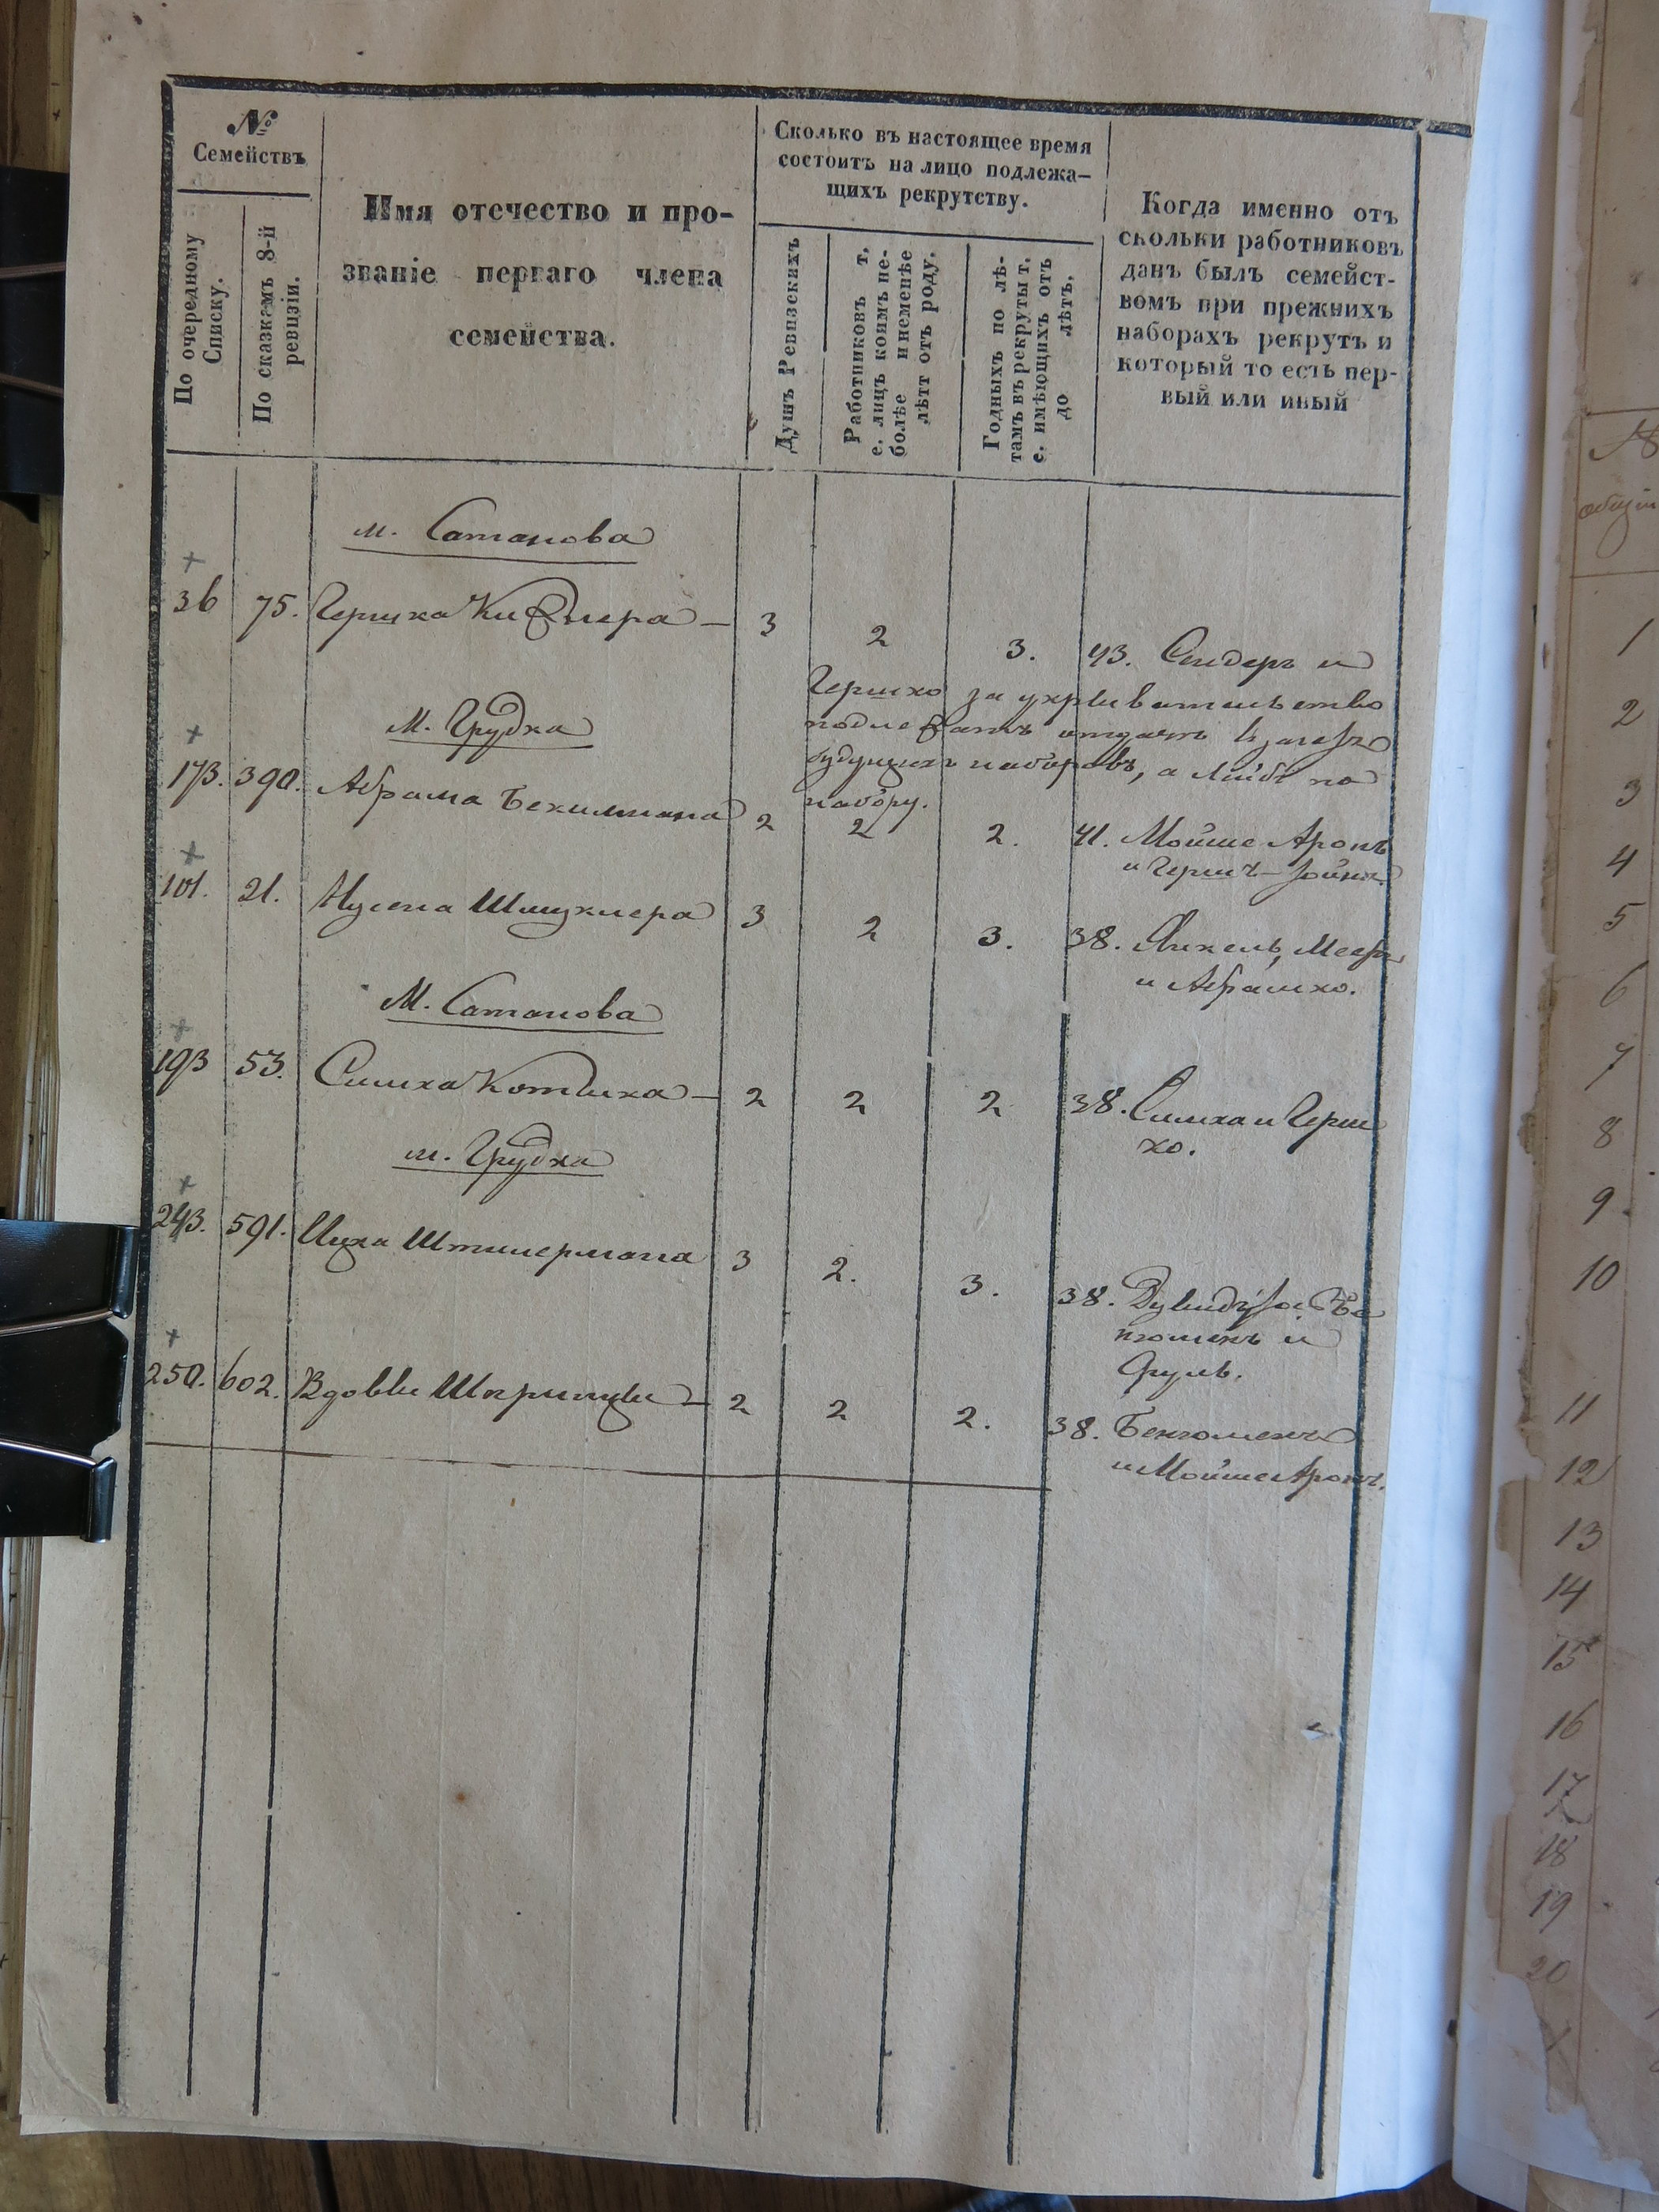 №
Семействъ
По очередному
Списку.
По сказкамъ 8-й
ревизіи.
Имя отечество и про-
званіе перваго члена
семейства.
Сколько въ настоящее время
состоитъ на лицо подлежа-
щихъ рекрутству.
Душъ Ревизскихъ
Работниковъ т.
е. лицъ коимъ не-
болѣе и неменѣе
лѣтт отъ роду.
Годныхъ по лѣ-
тамъ въ рекруты т.
е. имѣющихъ отъ
до лѣтъ.
Когда именно отъ
скольки работниковъ
данъ былъ семейст-
вомъ при прежнихъ
наборахъ рекрутъ и
который то есть пер-
вый или иный
м. Сатанова
36 75. Гершка 3 2 3. 43. Сендеръ и
Гершко за укрывательство
подлежатъ отдачѣ въ зачетъ
будущихъ наборовъ, а Лейба по
набору.
М. Грудка
173. 390. Абрама 2 2 2. 41. Мойше Аронъ
и Гершъ
101. 21. Нусена Шмуклера 3 2 3. 38. Янкель, Мееръ
и Абрамко.
М. Сатанова
193 53. Симха Котлика 2 2 2 38. Симха и Герш
ко.
м. Грудка
243. 591. Ицка Штилермана 3 2. 3. 38.
и
Сруль.
250. 602. Вдовы 2 2 2. 38. Бенюменъ
и Мойше Аронъ.
№
1
2
3
4
5
6
7
8
9
10
11
12
13
14
15
16
17
18
19
20